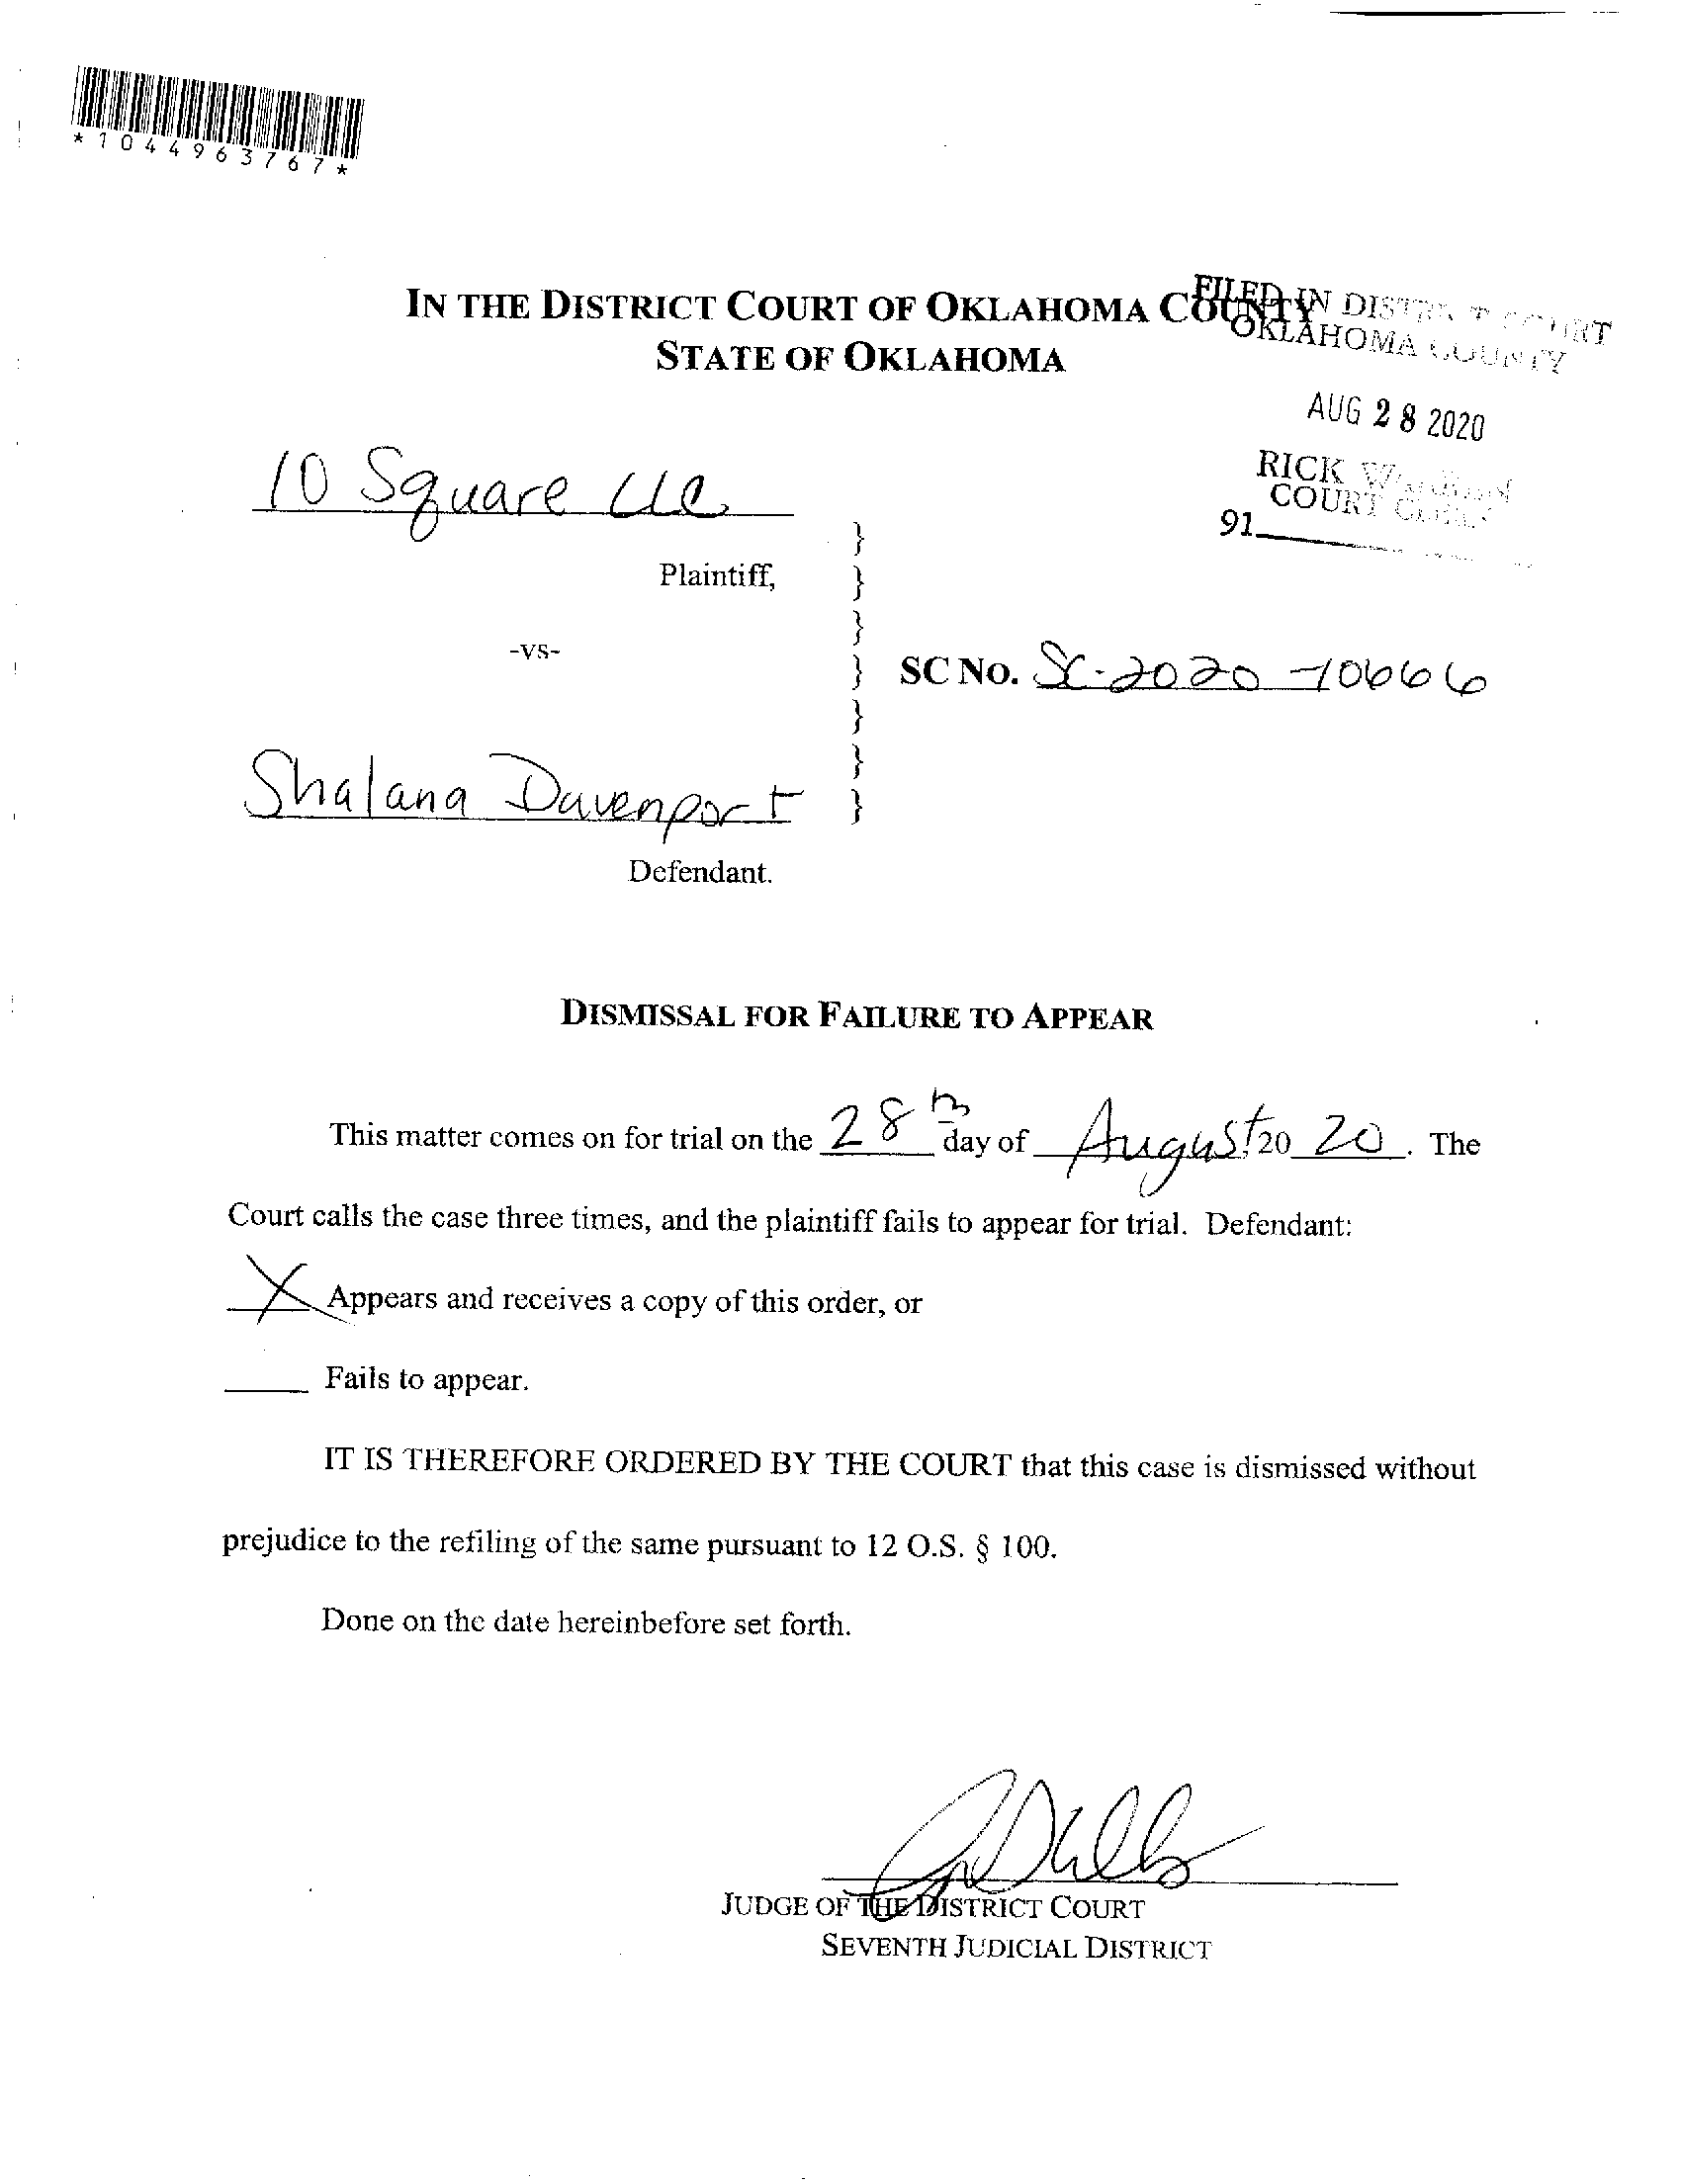 *1044963767*
IN THE DISTRICT COURT OF OKLAHOMA COUNTY
STATE OF OKLAHOMA
FILED IN DISTRICT COURT
OKLAHOMA COUNTY
AUG 28 2020
RICK
COURT CLERK
91
10 Square LLC
Plaintiff,
-vs-
SC No. SC-2020-10666
Shalana Davenport
Defendant.
}
}
}
}
}
}
}
DISMISSAL FOR FAILURE TO APPEAR
This matter comes on for trial on the 28th day of August, 20 20. The
Court calls the case three times, and the plaintiff fails to appear for trial. Defendant:
X Appears and receives a copy of this order, or
____ Fails to appear.
IT IS THEREFORE ORDERED BY THE COURT that this case is dismissed without
prejudice to the refiling of the same pursuant to 12 O.S. § 100.
Done on the date hereinbefore set forth.
JUDGE OF THE DISTRICT COURT
SEVENTH JUDICIAL DISTRICT